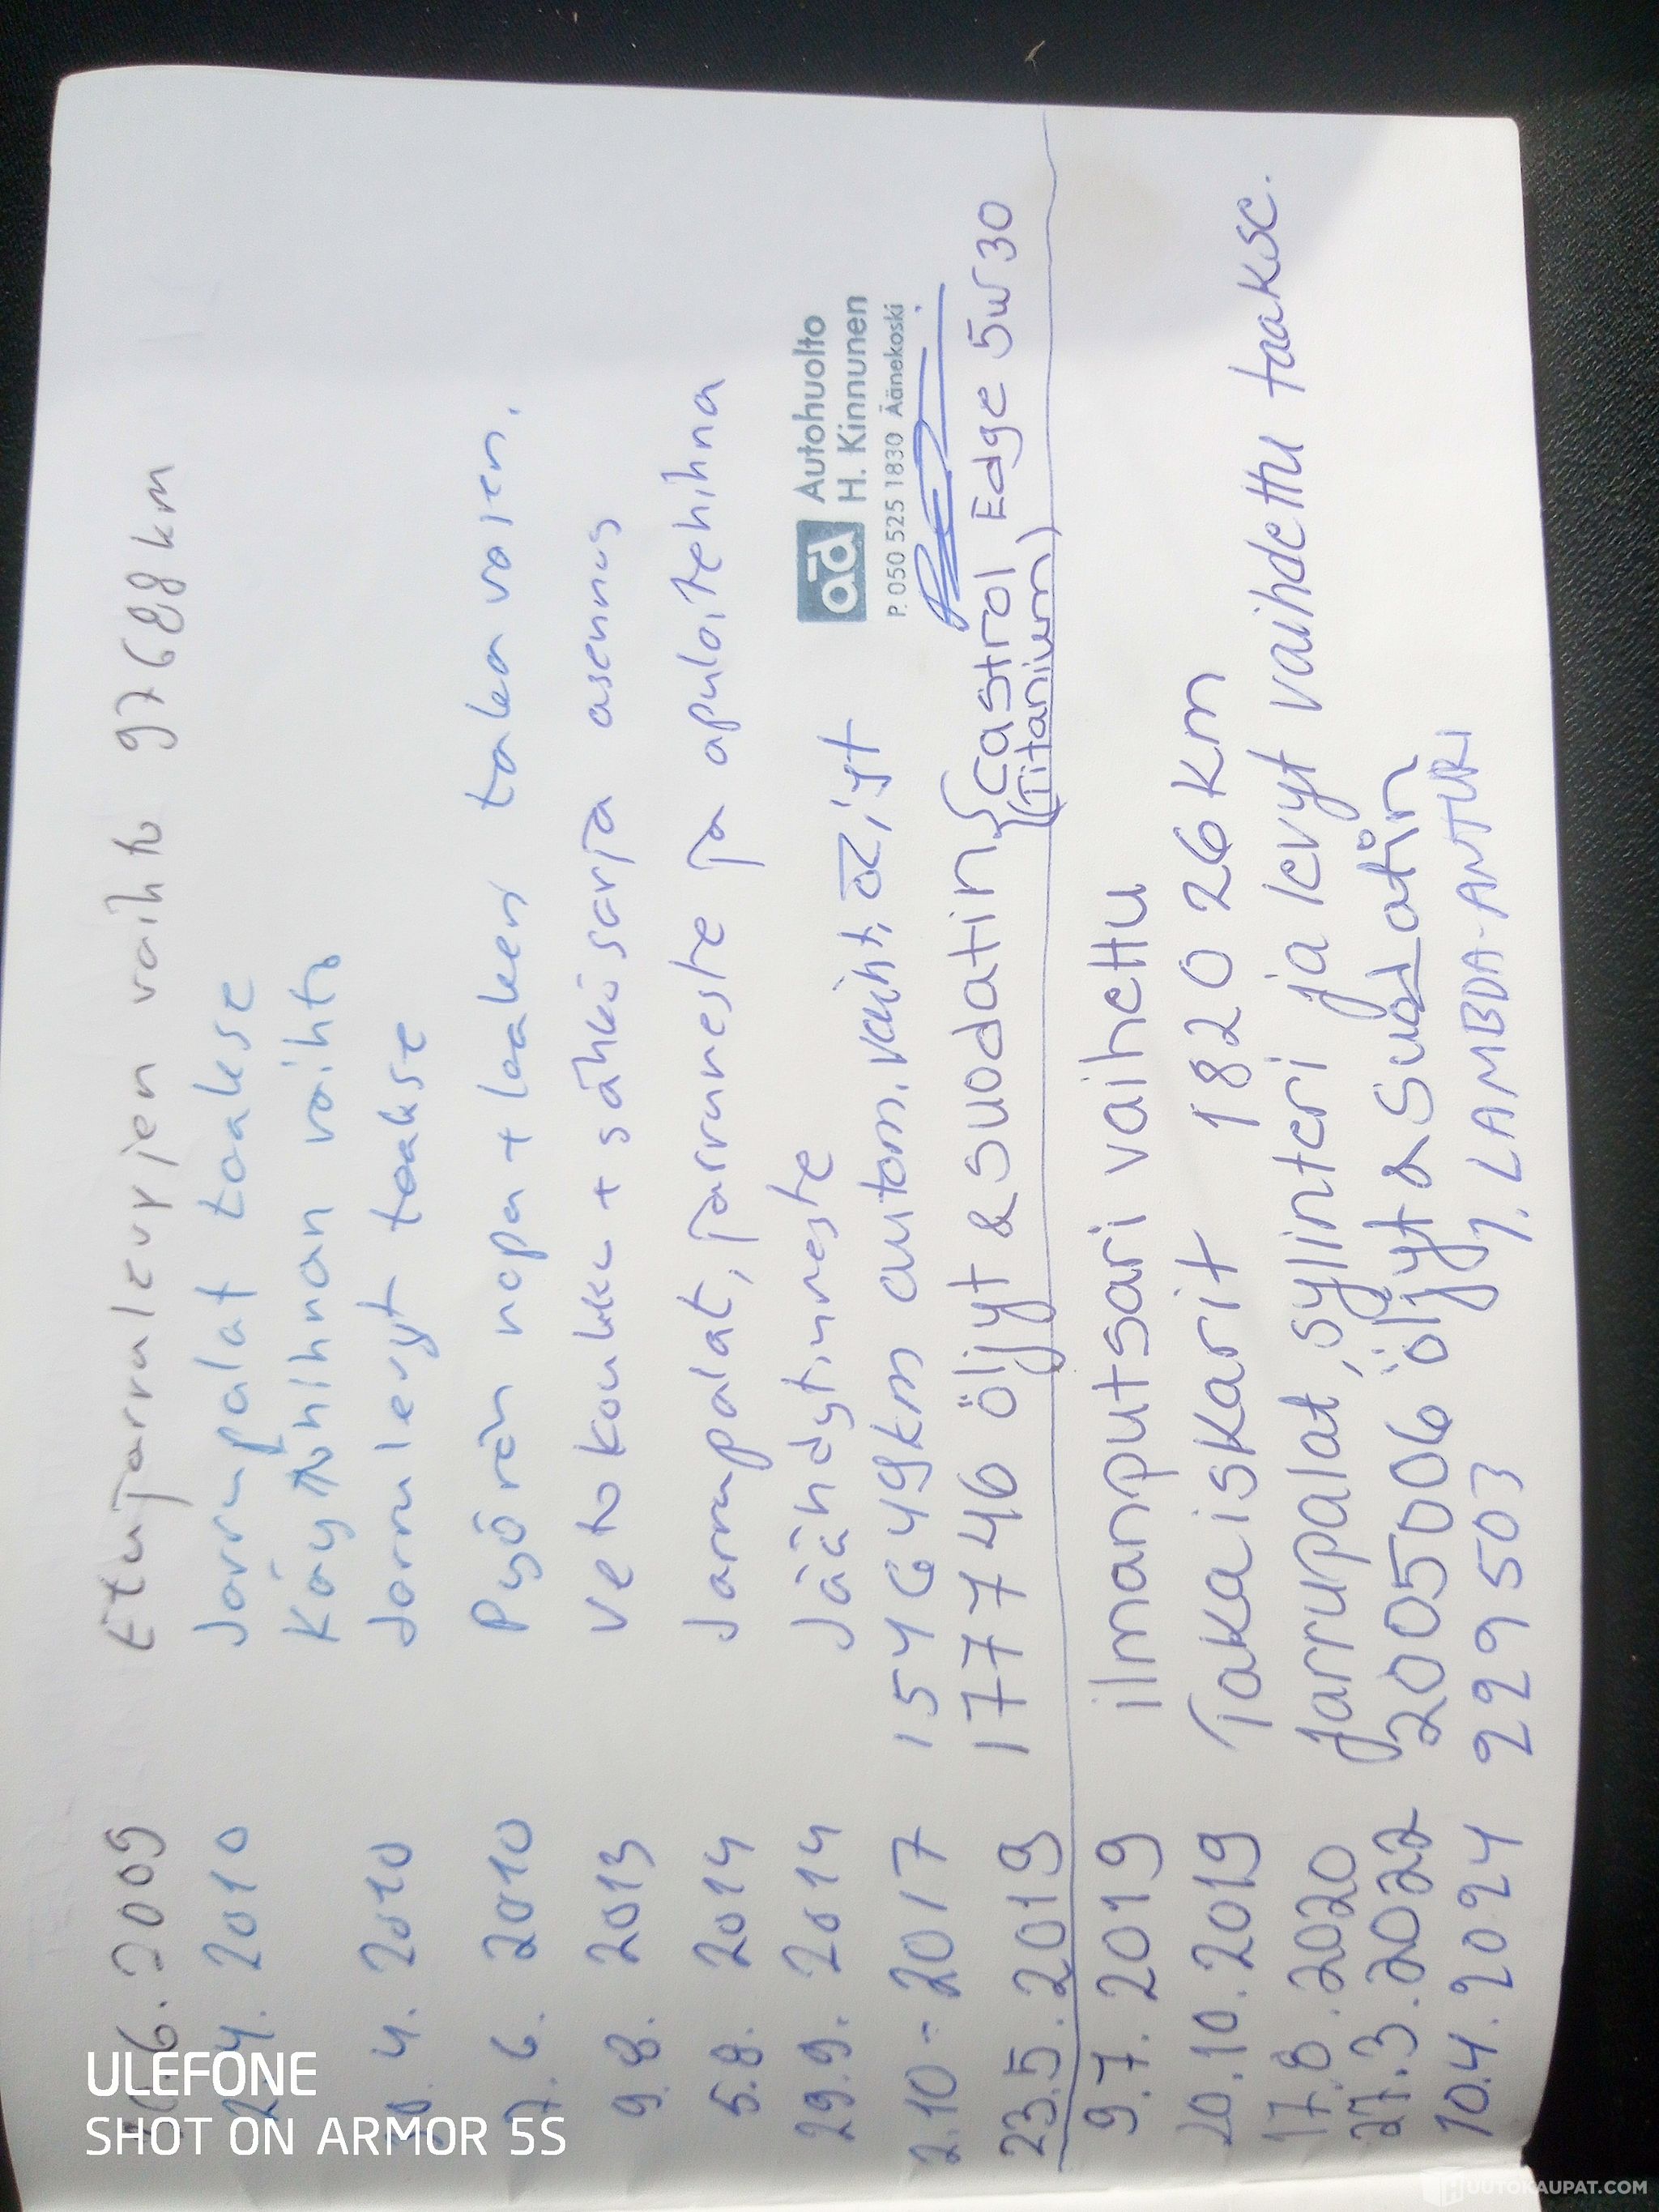 6.2009 Etujarrulevyjen vaihto 97688km
4.2010 Jarrupalat taakse
Käyttöhihnan vaihto
4.2010 Jarrulevyt taakse
6.2010 Pyörän napa + laakeri taka vasen.
9.8.2013 Vetokoukku + sähkösarja asennus
5.8.2014 Jarrupalat, jarruneste ja apulaitehihna
29.9.2014 Jäähdytinneste
2.10-2017 154649km autom.vaiht.öljyt
ad Autohuolto
H. Kinnunen
P. 050 525 1830 Äänekoski
23.5.2019 177746 öljyt & suodatin Castrol Edge 5w30
(Titanium)
9.7.2019 ilmanputsari vaihettu
20.10.2019 Takaiskarit 182026km
17.8.2020 Jarrupalat, sylinteri ja levyt vaihdettu taakse.
27.3.2022 205006 öljyt & suodatin
10.4.2024 229503 1. LAMBDA-ANTURI
ULEFONE
SHOT ON ARMOR 5S
HUUTOKAUPAT.COM